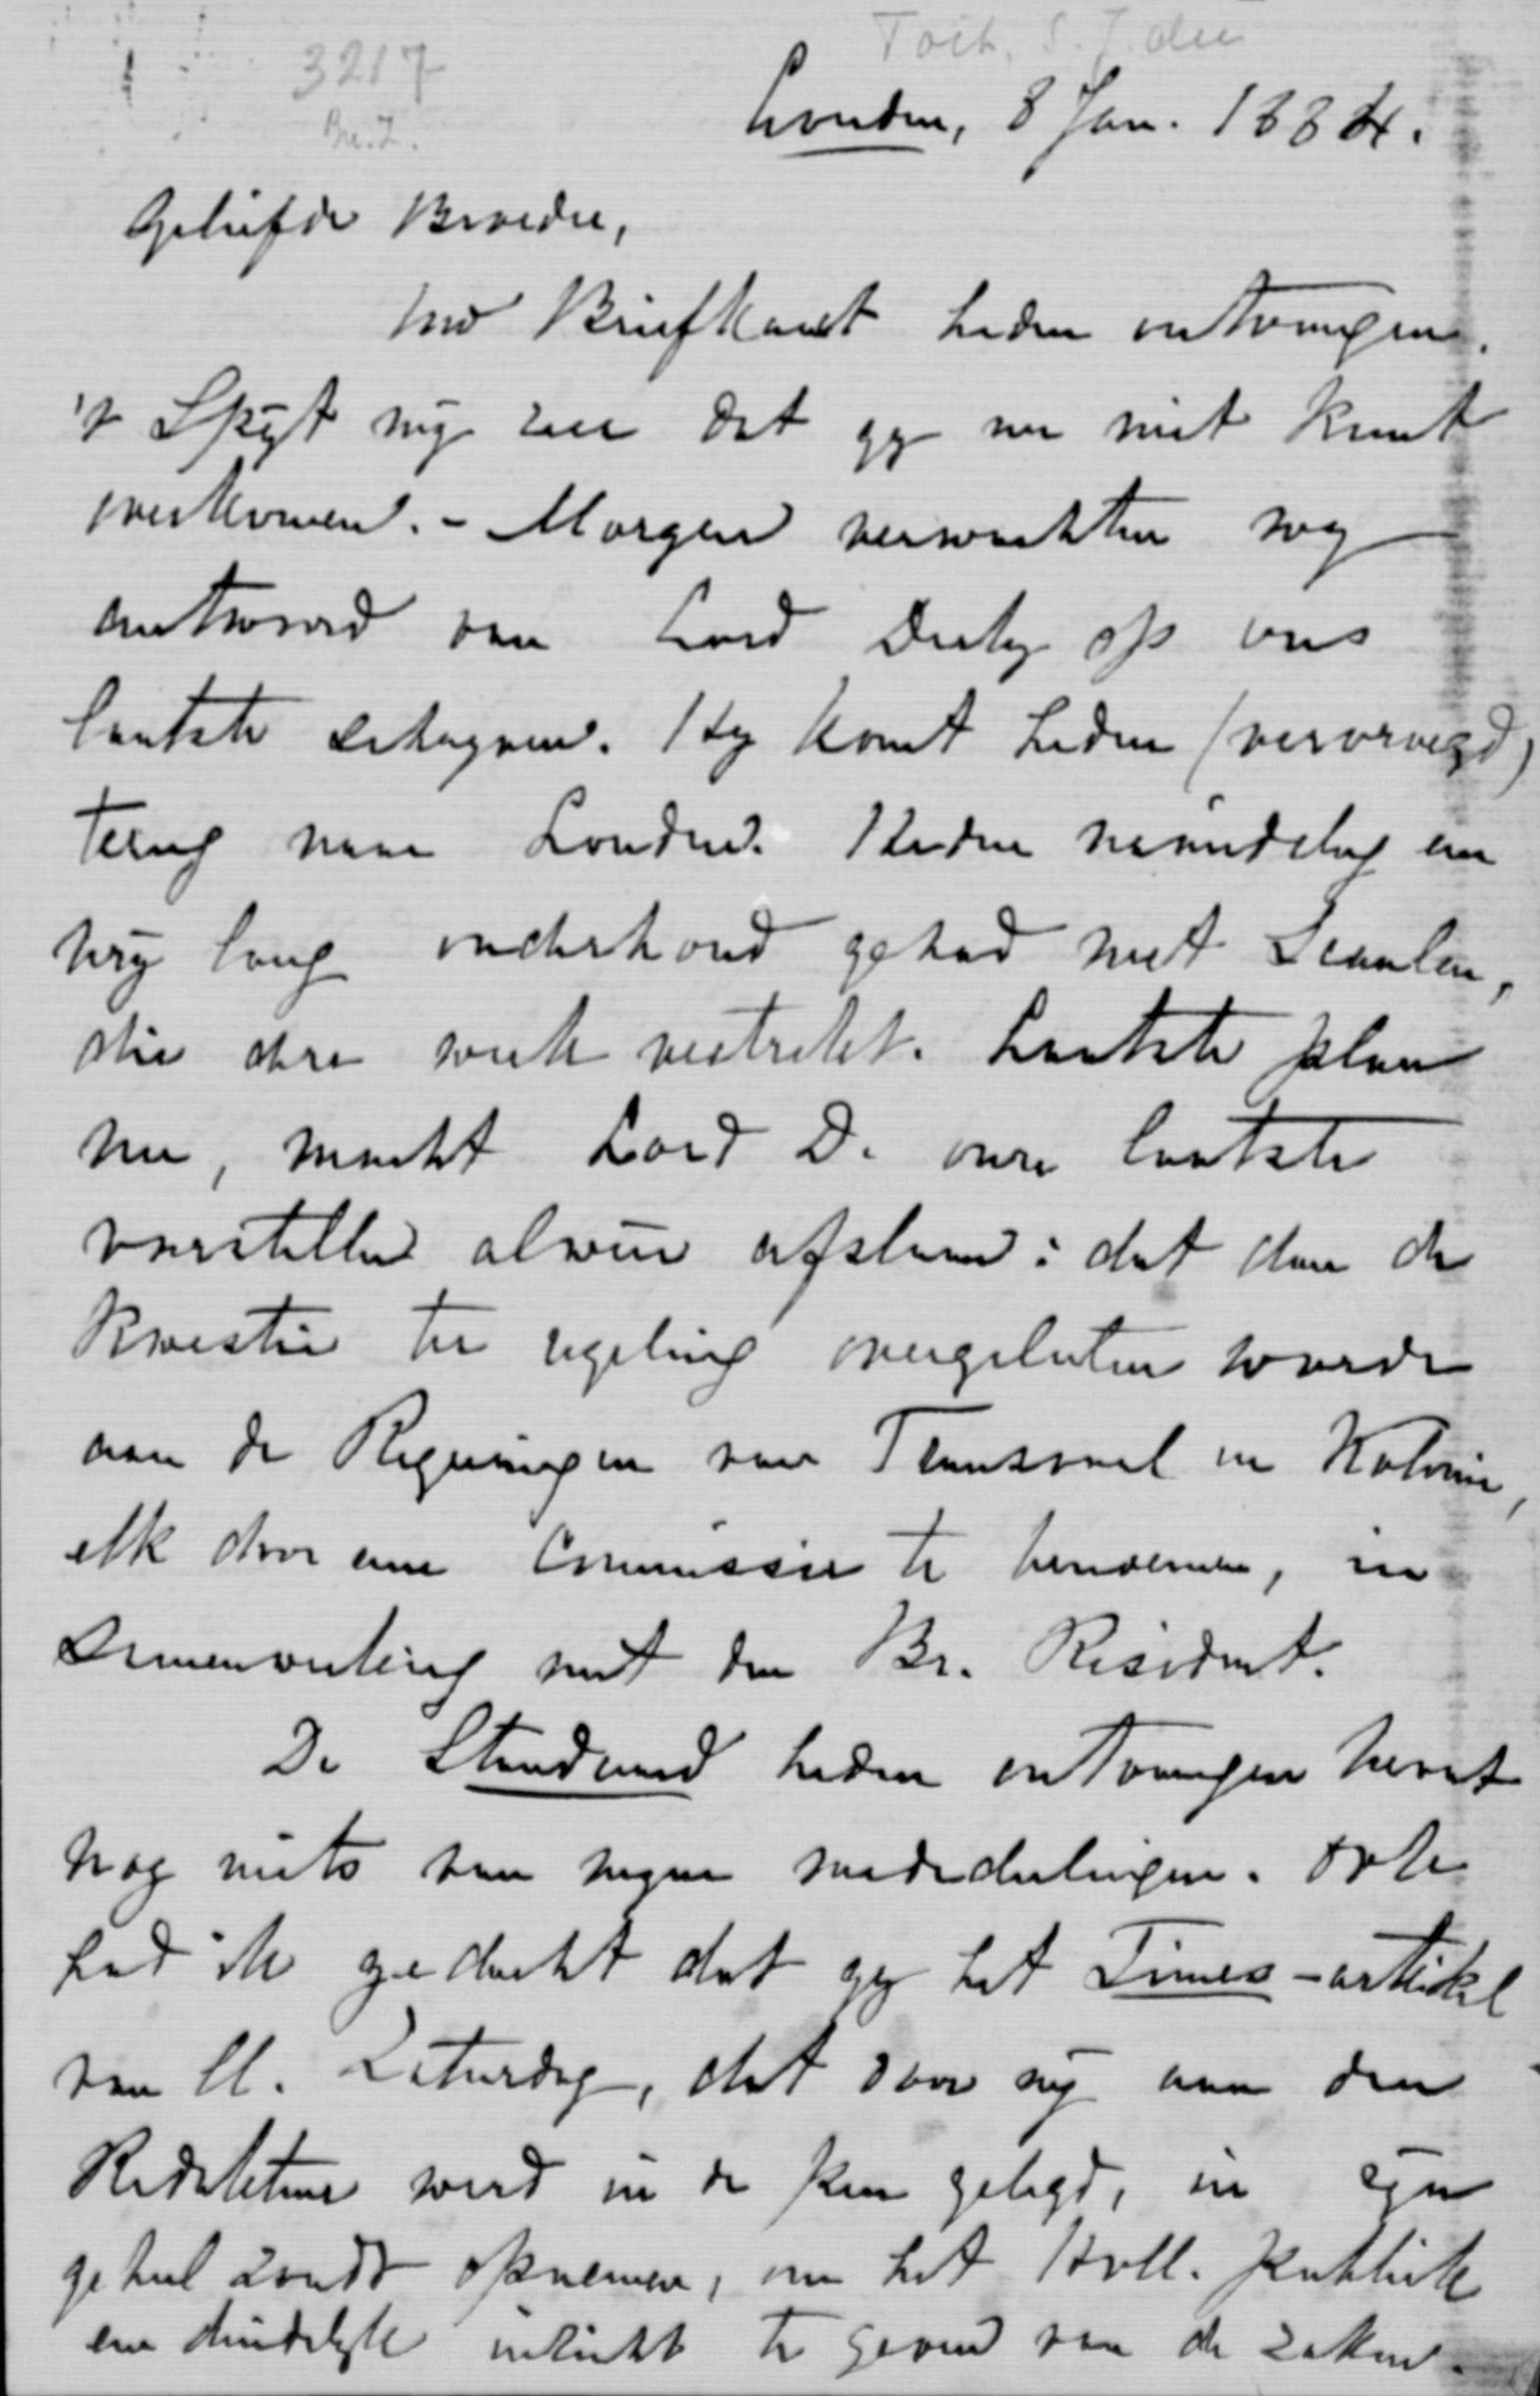 Toit, S. J. du
3217
Londen, 8 Jan. 1884.
Geliefde Broeder,
Uw Briefkaart heden ontvangen.
't Spijt mij zeer dat gij nu niet kunt
overkomen. - Morgen verwachten nog
antwoord van Lord Derby op ons
laatste schryven. Hy komt heden (vervroegd)
terug naar Londen. Heden namiddag een
vrij lang onderhoud gehad met Scanlen,
die dese week vertrekt. Laatste plan
nu, mocht Lord D. onze laatste
voorstellen alweer afslaan: dat dan de
kwestie ter regeling overgelaten worde
aan de Regeringen van Transvaal en Kolonie,
elk door eene Commissie te benoemen, in
samenwerking met den Br. Resident.
De Standaard heden ontvangen bevat
nog niets van mijne mededeelingen. Ook
had ik gedacht dat gij het Times-artikel
van ll. Zaturdag, dat door mij aan den
Redakteur werd in de pen gelegd, in zijn
geheel zoudt opnemen, om het Holl. publiek
een duidelijk inzicht te geven van de zaken.